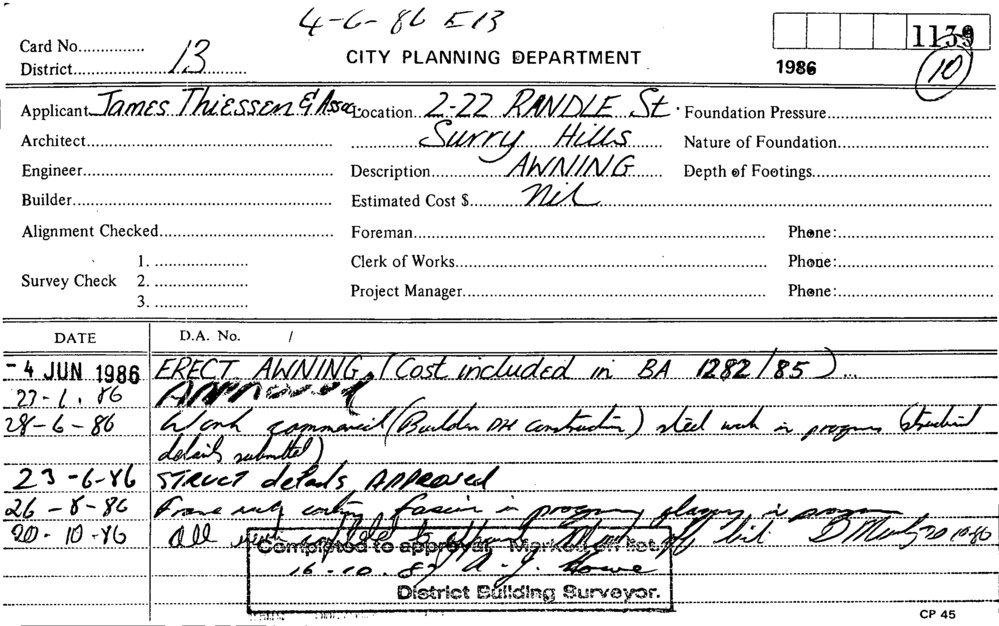 4-6-86 E13
Card No..............
District......13......
CITY PLANNING DEPARTMENT
1139
1986
10
Applicant James Thiessen & Assoc Location 2-22 RANDLE St. Foundation Pressure
Architect Surry Hills Nature of Foundation
Engineer Description AWNING Depth of Footings
Builder Estimated Cost $ Nil
Alignment Checked Foreman Phone:
Survey Check 1. Clerk of Works Phone:
2.
3. Project Manager Phone:
DATE D.A. No. /
-4 JUN 1986 ERECT AWNING. (Cost included in BA 1282/85)
APPROVED
28-6-86 Work commenced (Builder DH construction) steel work in progress (structural
details submitted)
23-6-86 STRUCT details APPROVED
26-8-86 Frame fascia in progress in progress
20-10-86 All work complete off list 20-10-86
Completed to approval, Marked off list.
16-10-87 A. J. Howe
District Building Surveyor.
CP 45